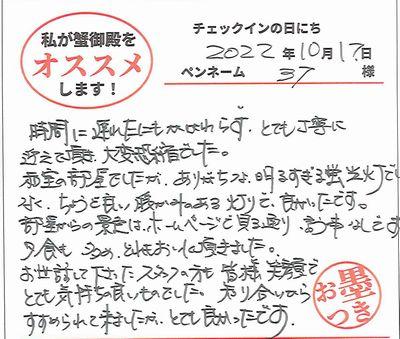 私が蟹御殿を
オススメ
します！
チェックインの日にち
2022年10月17日
ペンネーム 37 様
時間に遅れたにもかかわらず、とても丁寧に
迎えて頂き、大変恐縮でした。
和室の部屋でしたが、ありがちな、明るすぎる蛍光灯で
なく、ちょうど良い暖かみのある灯りで、良かったです。
部屋からの景色は、ホームページで見る通り、文句なしです
夕食も、とてもおいしく頂きました。
お世話して下さったスタッフの方も皆様、笑顔で
とても気持ちの良いものでした。知り合いから
すすめられて来ましたが、とても良かったです。
お墨つき